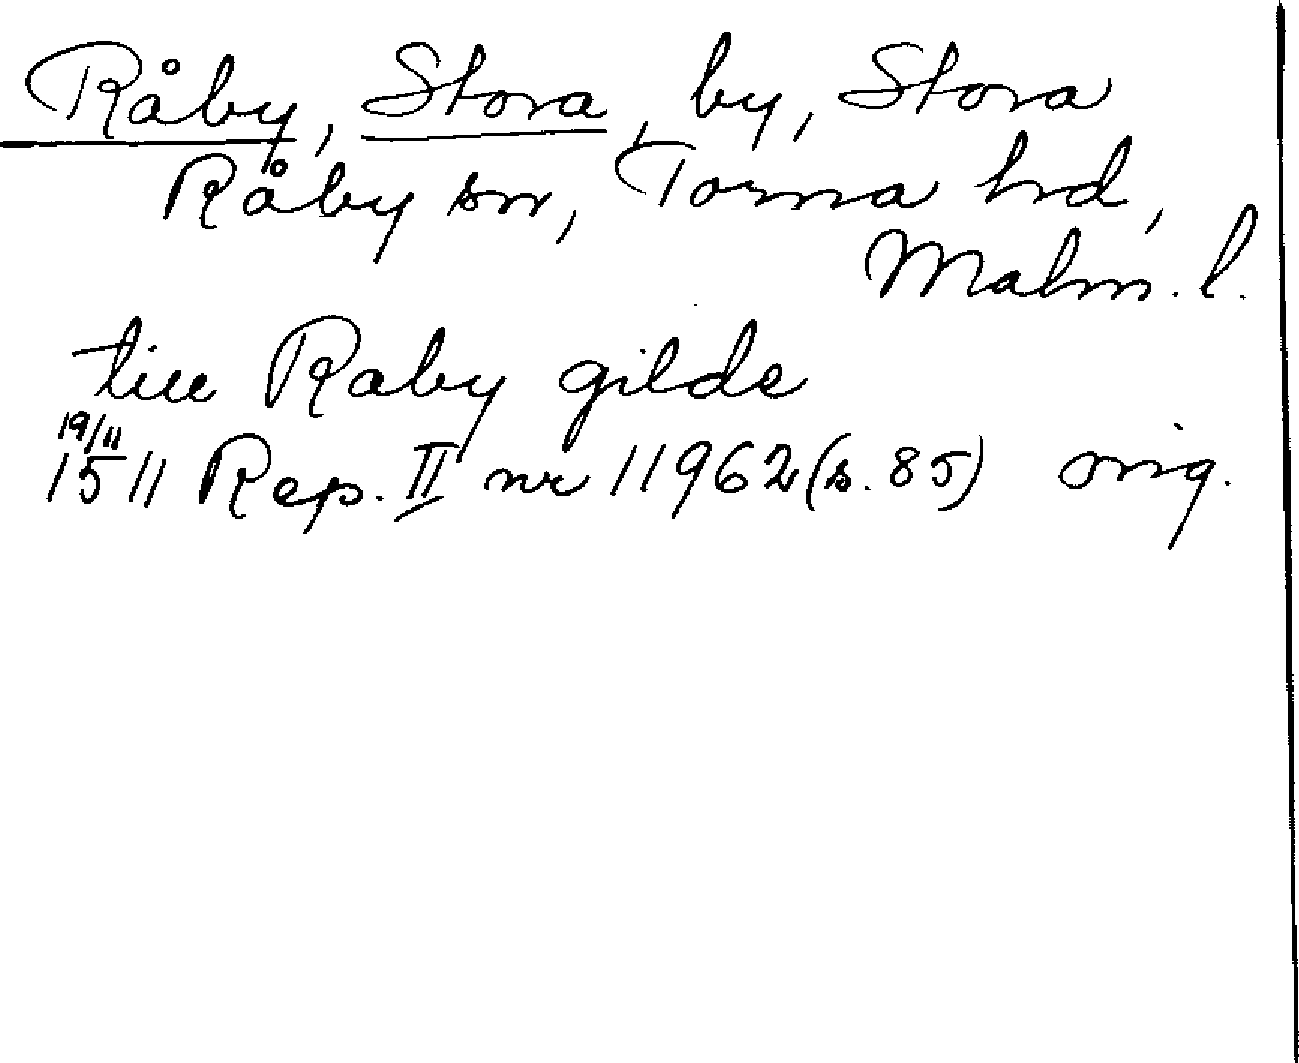 Råby, Stora, by, Stora
Råby sn, Torna hrd,
Malm. l.
till Raby gilde
19/11
1511 Rep. II nr 11962 (s. 85) orig.